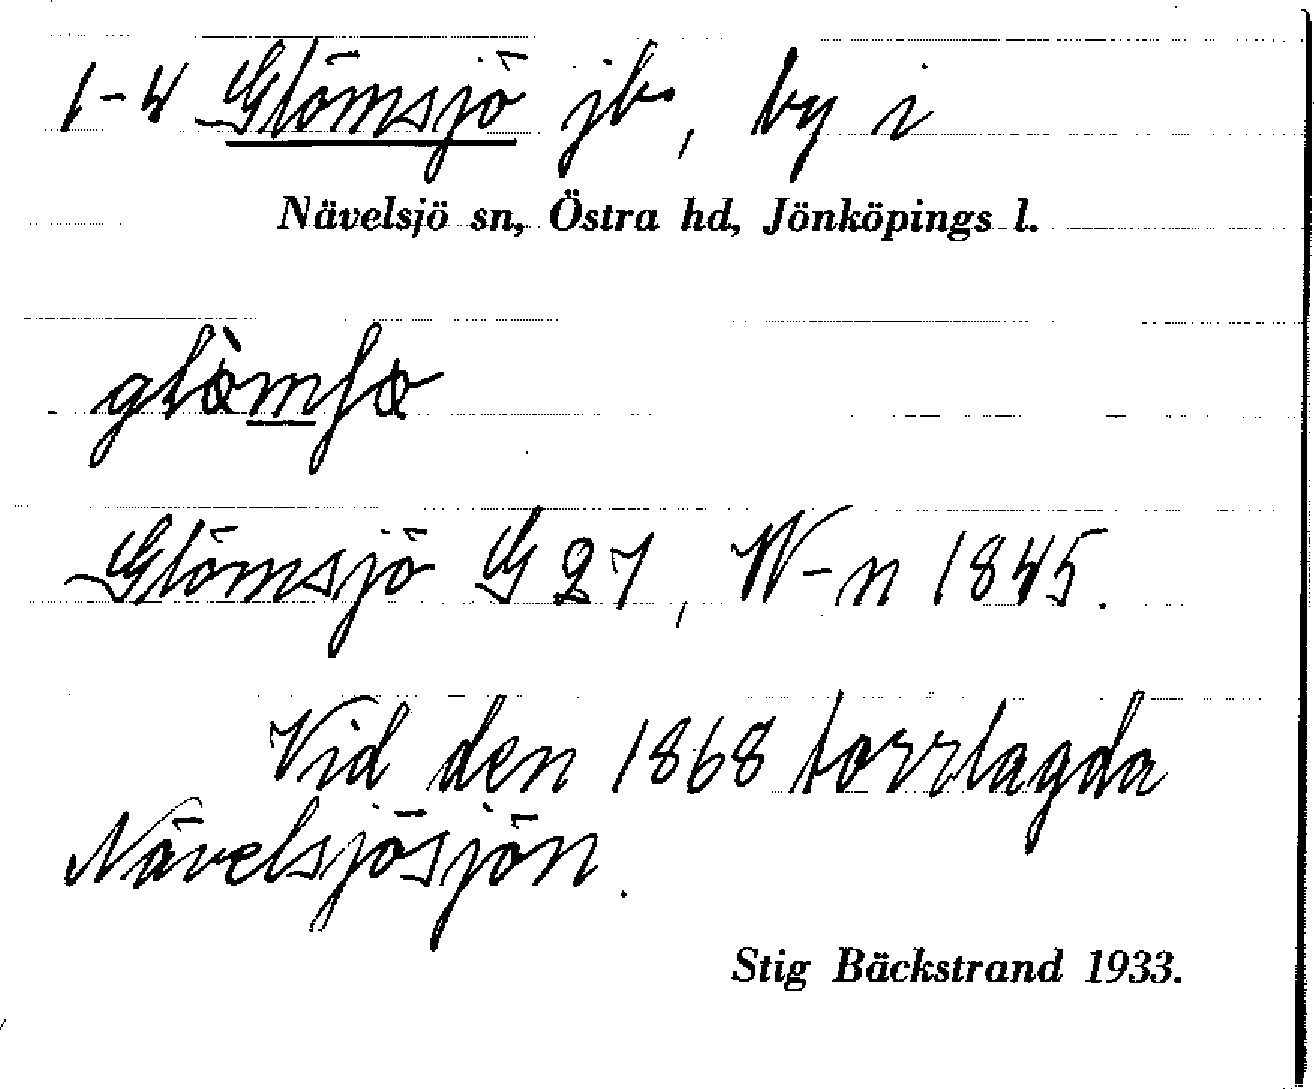 1-4 Glömsjö jb, by i
Nävelsjö sn, Östra hd, Jönköpings l.
glø̀mʃø
Glömsjö G 27, W-n 1845.
Vid den 1868 torrlagda
Nävelsjösjön.
Stig Bäckstrand 1933.